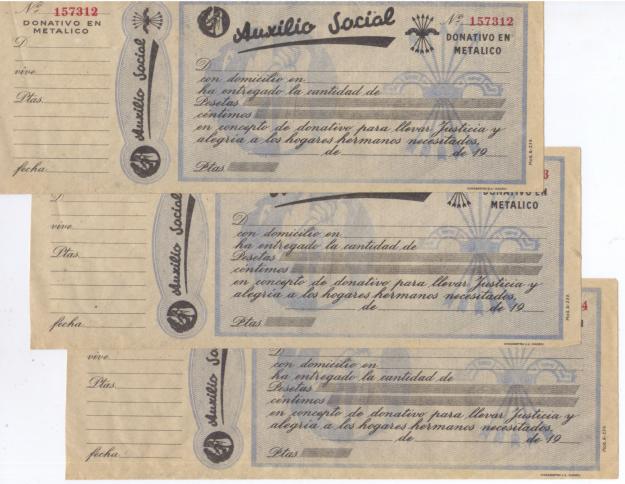 Nº 157312
DONATIVO EN
METALICO
D
vive
Ptas.
fecha
Auxilio Social
Auxilio Social
Nº 157312
DONATIVO EN
METALICO
D
con domicilio en
ha entregado la cantidad de
Pesetas
céntimos
en concepto de donativo para llevar Justicia y
alegría a los hogares hermanos necesitados.
de de 19
Ptas
Mod. B-23A
D
vive
Ptas.
fecha
Auxilio Social
3
DONATIVO EN
METALICO
D
con domicilio en
ha entregado la cantidad de
Pesetas
céntimos
en concepto de donativo para llevar Justicia y
alegría a los hogares hermanos necesitados.
de de 19
Ptas
vive
Ptas.
fecha
Auxilio Social
4
D
con domicilio en
ha entregado la cantidad de
Pesetas
céntimos
en concepto de donativo para llevar Justicia y
alegría a los hogares hermanos necesitados.
de de 19
Ptas